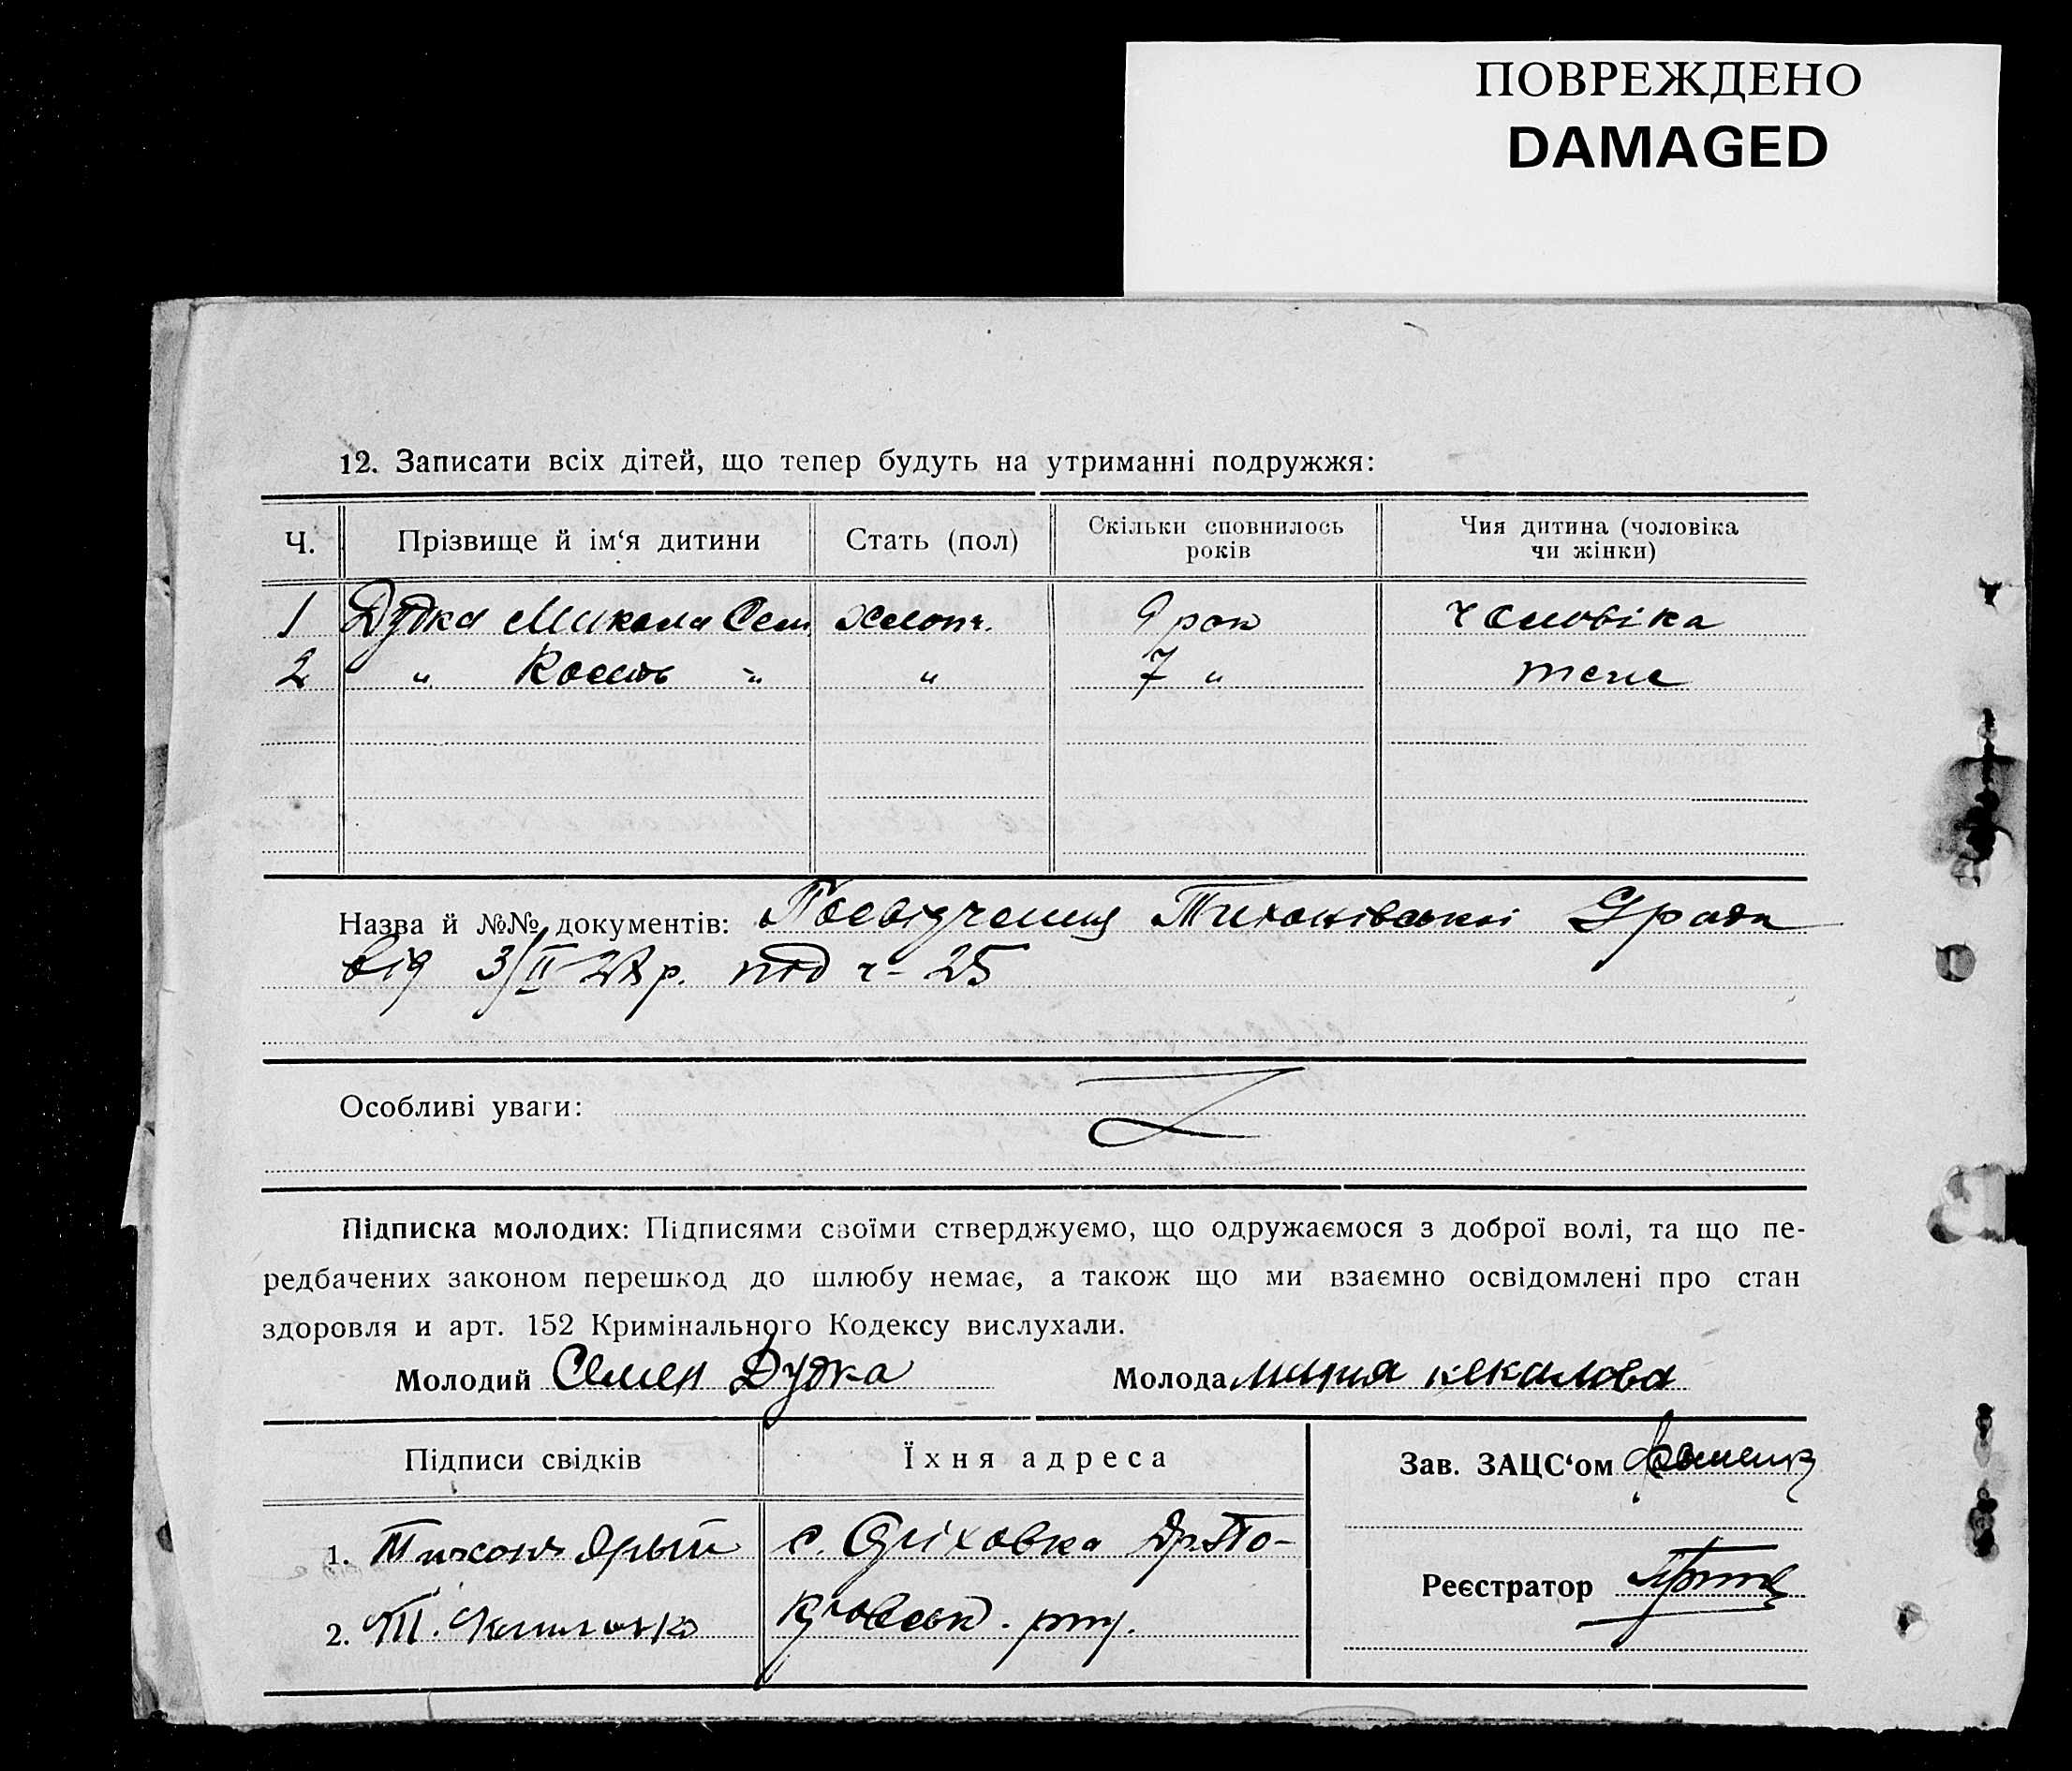 ПОВРЕЖДЕНО
DAMAGED
12. Записати всіх дітей, що тепер будуть на утриманні подружжя:
Ч. Прізвище й ім‘я дитини Стать (пол) Скільки сповнилось років Чия дитина (чоловіка чи жінки)
1 Дудка Микола Сем. хлопч. 9 рок чоловіка
2 " Кость " " 7 " теж
Назва й №№ документів: Посвідчення
від 3/II 28 р. під ч- 25
Особливі уваги:
Підписка молодих: Підписями своїми стверджуємо, що одружаємося з доброї волі, та що пе-
редбачених законом перешкод до шлюбу немає, а також що ми взаємно освідомлені про стан
здоровля и арт. 152 Кримінального Кодексу вислухали.
Молодий Семен Дудка Молода
Підписи свідків Їхня адреса Зав. ЗАЦС‘ом
1. Тихон с.
Реєстратор
2. Т.